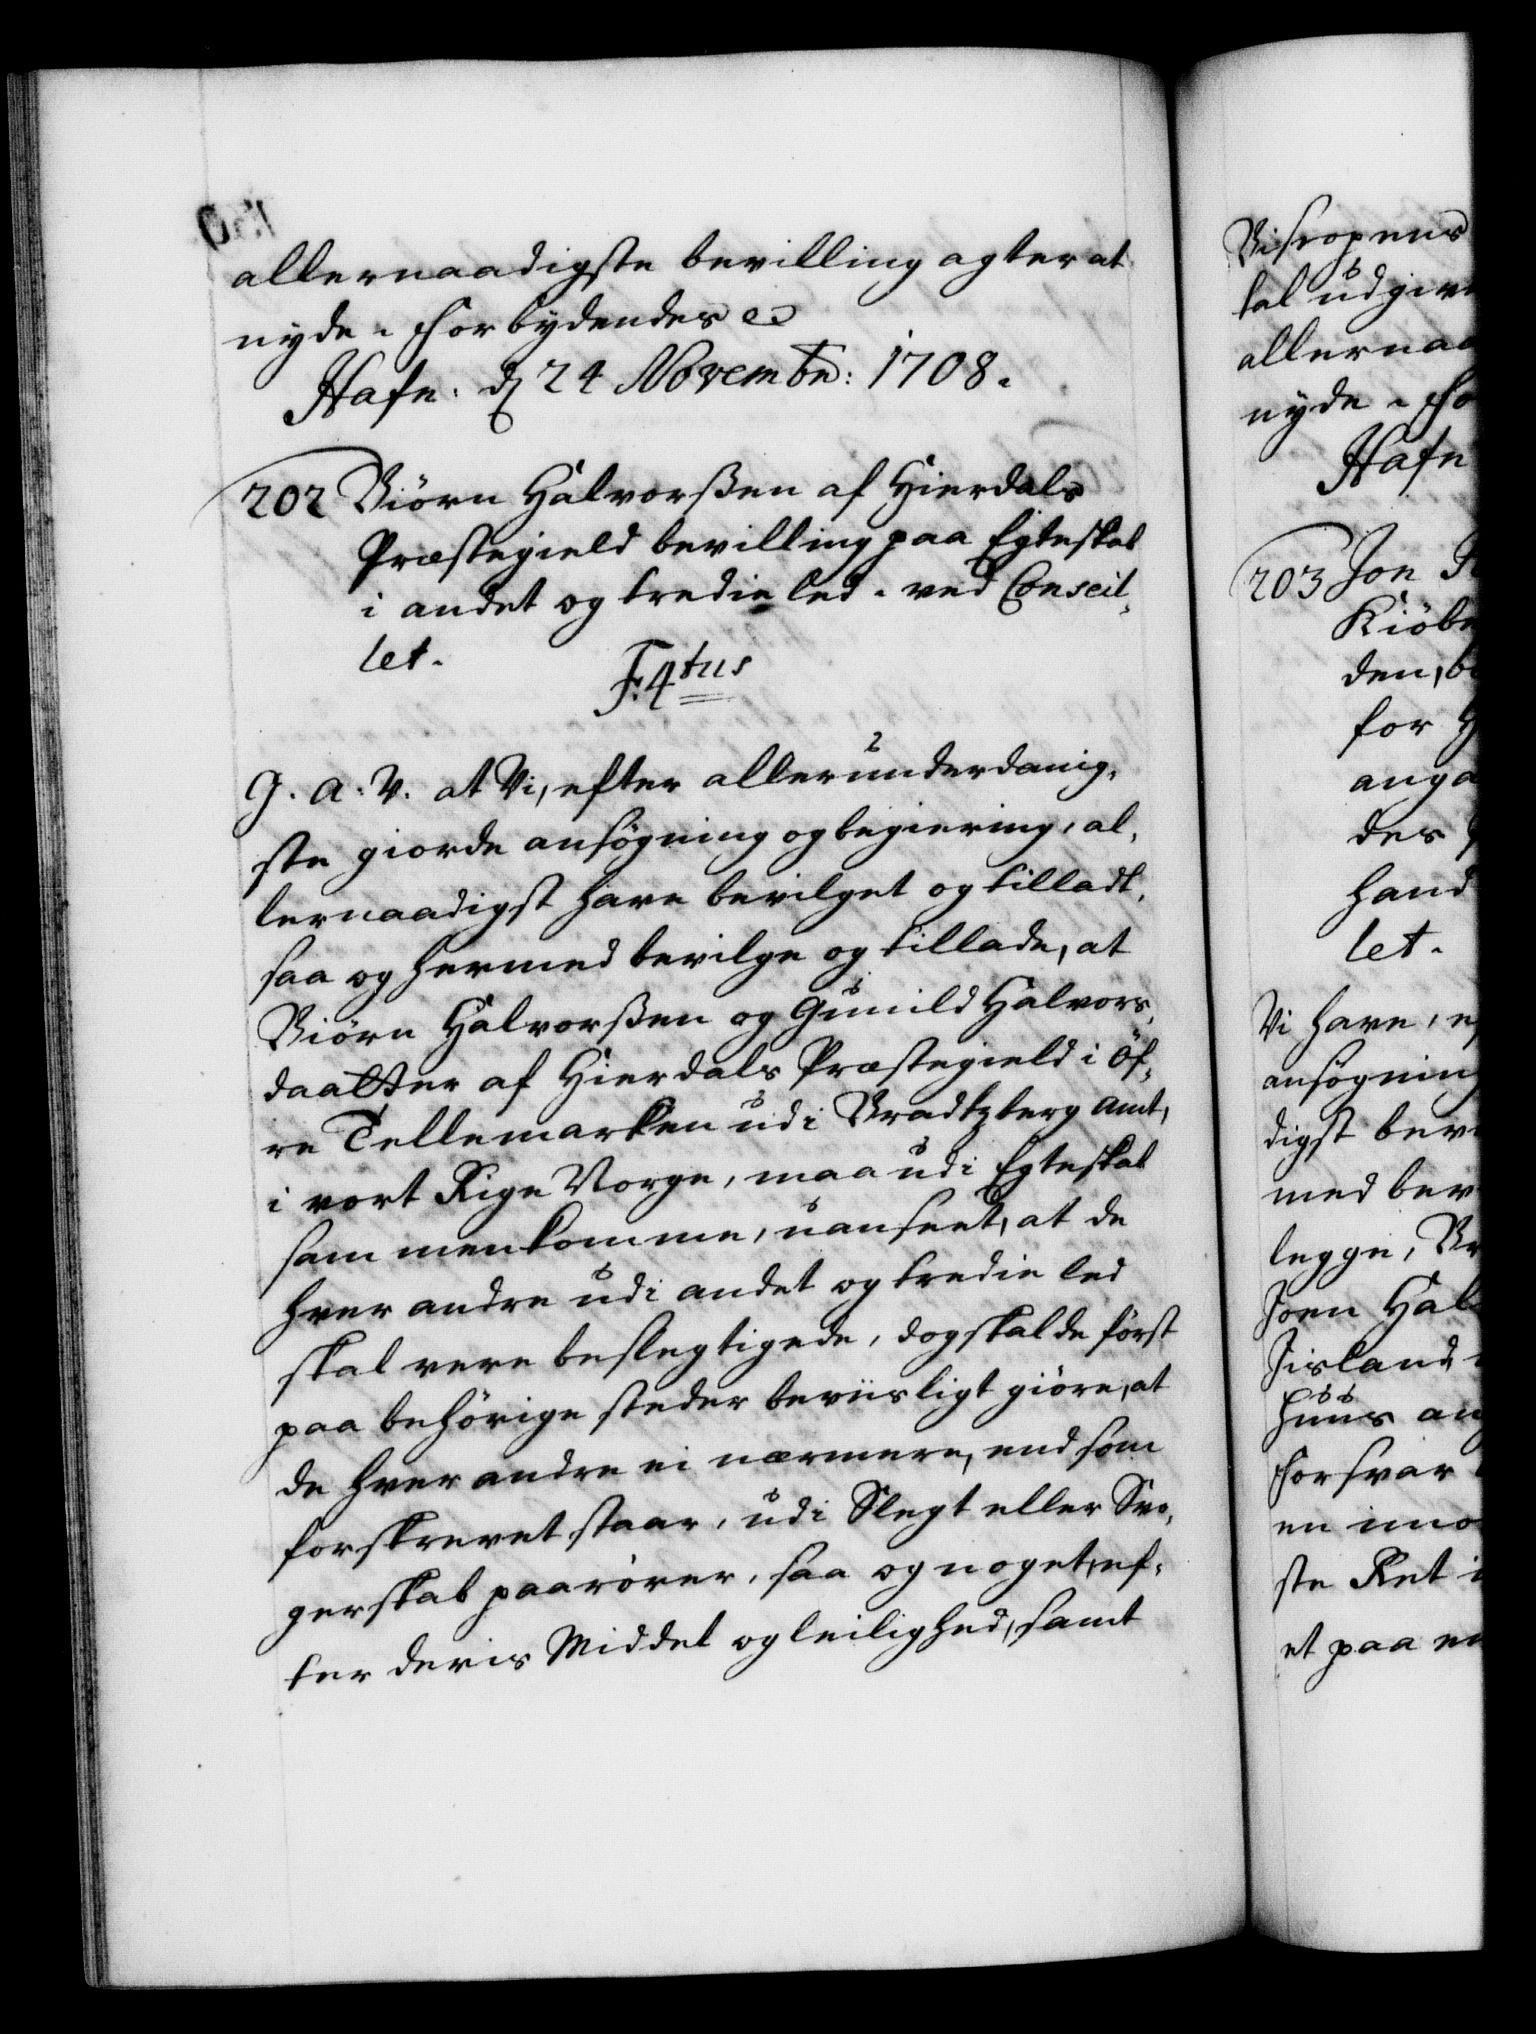 allernaadigste bevilling agter at
nyde. Forbydendes &c
Hafn. d 24 Novembr: 1708.
202 Biörn Halvorßen af Hierdals
Præstegield bevilling paa Egteskab
i andet og tredie led. ved Conseil-
let.
F. 4tus
G. A. V. at Vi, efter allerunderdanig-
ste giorde ansögning og begiering, al-
lernaadigst have bevilget og tilladt,
saa og hermed bevilge og tillade, at
Biörn Halvorßen og Gunild Halvors-
daatter af Hierdals Præstegield i Öf-
re Tellemarken udi Bradtzberg amt,
i vort Rige Norge, maa udi Egteskab
sammenkomme, uanseet, at de
hver andre udi andet og tredie led
skal vere beslegtigede, dog skal de först
paa behörige steder beviisligt giöre, at
de hver andre ei nærmere, end som
forskrevet staar, udi Slegt eller Svo-
gerskab paarörer, saa og noget, ef-
ter deris Middel og leilighed, samt
Biscopens
tal udgive
allernaa
nyde. Fo
Hafn
203 Jon
Kiöbe
den, b
for H
anga
des
hand
let.
Vi have, ef
ansögning
digst bevi
med bev
legge,
Joen Hal
Iisland
huus an
Forsvar
en imo
ste Ret i
et paa en